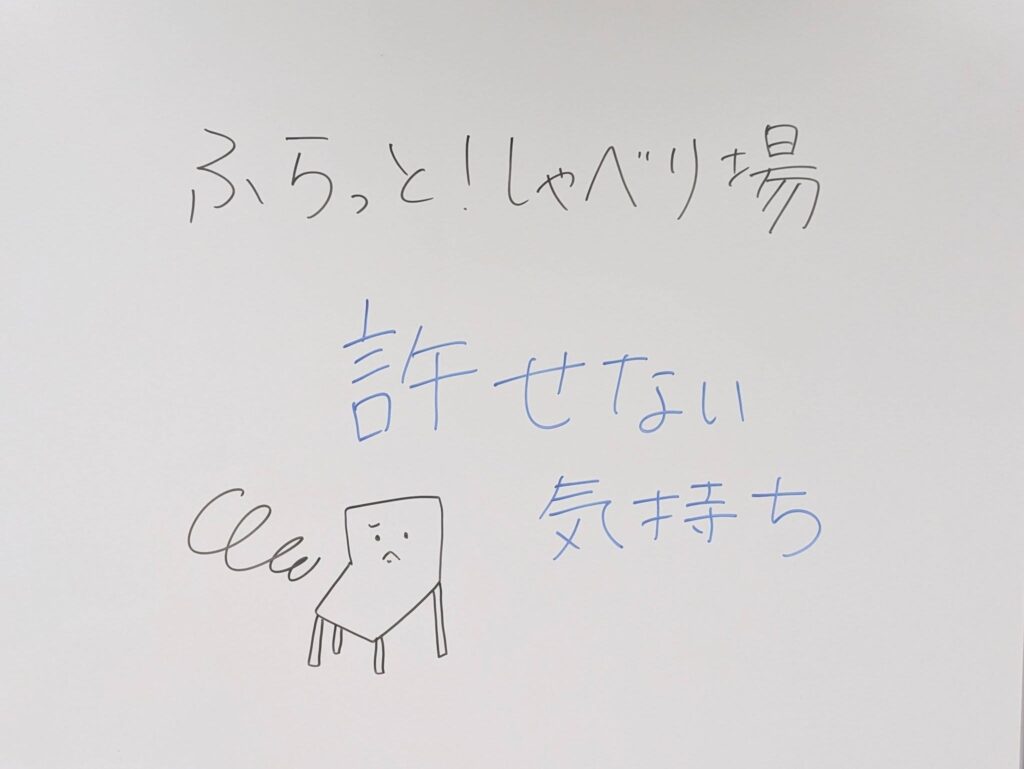 ふらっと!しゃべり場
許せない
気持ち